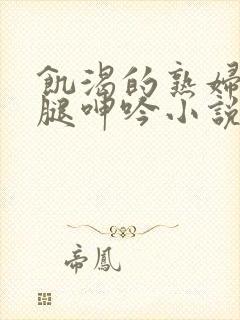 飢渴的熟婦
腿呻吟小說
帝鳳